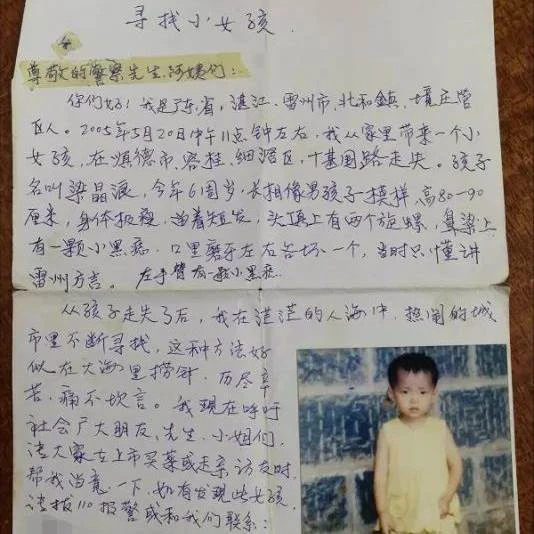 寻找小女孩
尊敬的警察先生、阿姨们:
你们好!我是广东省,湛江、雷州市、北和鎮、境庄管
区人。2005年5月20日中午11点钟左右,我从家里带来一个小
女孩,在顺德市、容桂,细滘区,十基围路走失。孩子
名叫梁晶浪,今年6周岁,长相像男孩子一模样,高80-90
厘米,身体极瘦,留着短发,头顶上有两个旋螺,鼻梁上
有一颗小黑痣,口里磨牙左右各坏一个,当时只懂讲
雷州方言。左手臂有一颗小黑痣
从孩子走失了后,我在茫茫的人海中,热闹的城
市里不断寻找,这种方法好
似在大海里捞针,历尽辛
苦,痛不坎言。我现在呼吁
社会广大朋友、先生、小姐们,
请大家在上市买菜或走亲访友时,
帮我留意一下,如有发现些女孩,
请拨110报警或和我们联系: